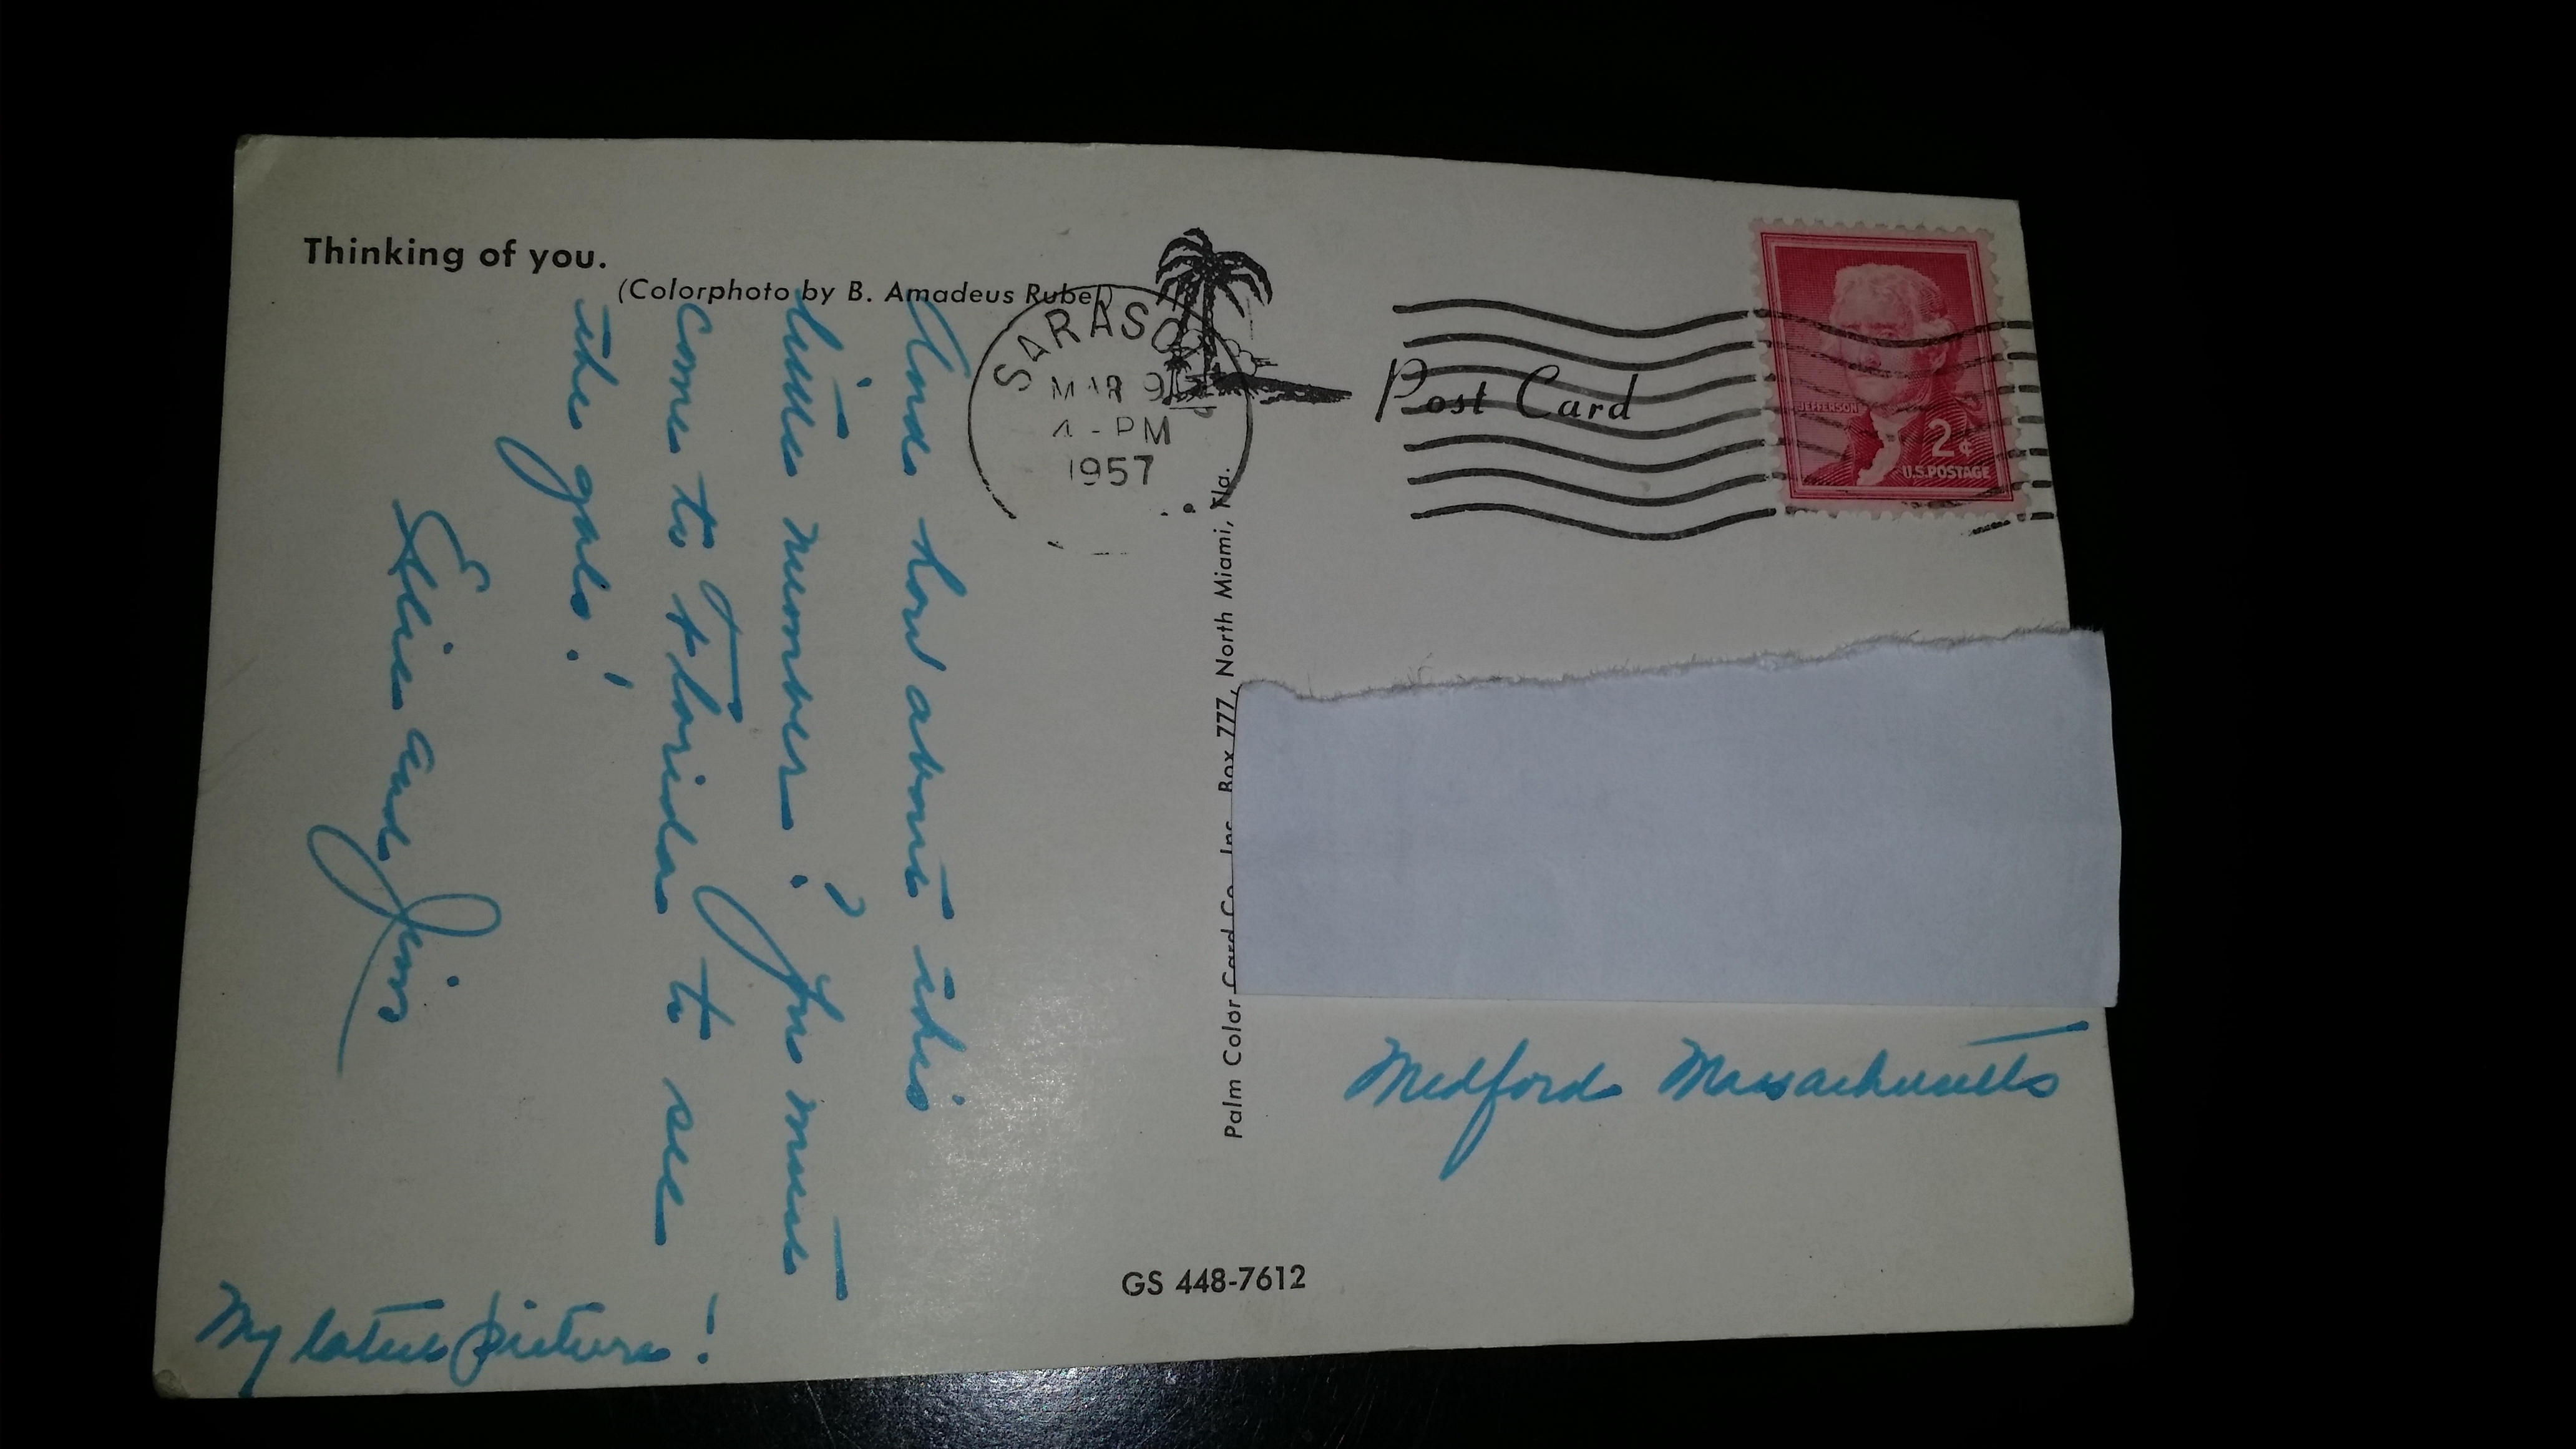 Thinking of you.
(Colorphoto by B. Amadeus Rubel)
And how about this
little number? You must
come to Florida to see
the gals!
Elsie and Jim
My latest picture!
SARASO
MAR 9
4 - PM
1957
Post Card
JEFFERSON
2¢
U.S. POSTAGE
Palm Color Card Co., Inc., Box 777, North Miami, Fla.
Medford Massachusetts
GS 448-7612